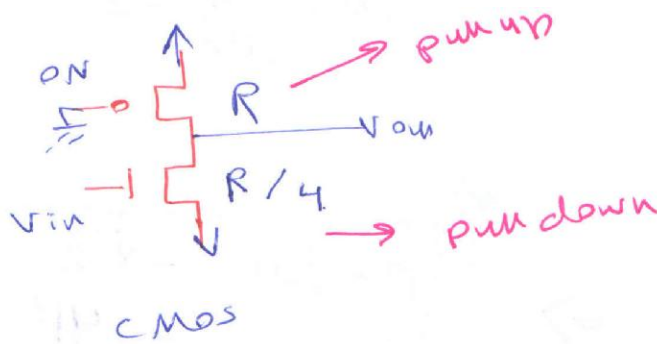 pull up
ON
R
Vout
R/4
Vin
pull down
CMOS